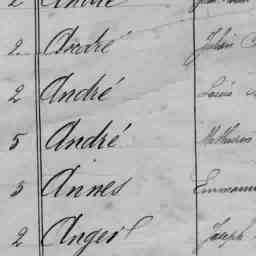 2 André
2 André Julien
2 André Louis
5 André Mathurin
5 Annes Emmanu
2 Anger Joseph